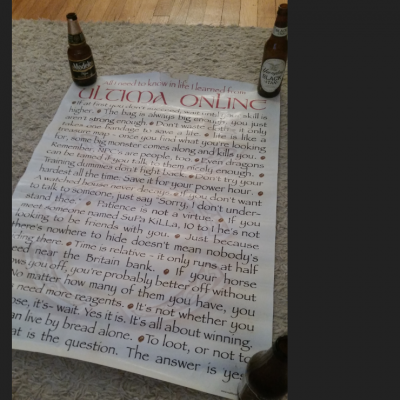 All I need to know in life I learned from
ULTIMA ONLINE
If at first you don't succeed, wait until your skill is
higher. The bag is always big enough, you just
aren't strong enough. Don't waste cloth - it only
takes one bandage to save a life. Life is like a
treasure map - once you find what you're looking
for, some big monster comes along and kills you.
Remember, NPC's are people, too. Even dragons
can be tamed if you talk to them nicely enough.
Training dummies don't fight back. Don't try your
hardest all the time. Save it for your power hour.
A watched house never decays. If you don't want
to talk to someone, just say "Sorry, I don't under-
stand thee." Patience is not a virtue. If you
meet someone named SuPa KiLLa, 10 to 1 he's not
looking to be friends with you. Just because
there's nowhere to hide doesn't mean nobody's
ding there. Time is relative - it only runs at half
eed near the Britain bank. If your horse
ows you off, you're probably better off without
No matter how many of them you have, you
need more reagents. It's not whether you
ose, it's- wait. Yes it is. It's all about winning.
an live by bread alone. To loot, or not to
at is the question. The answer is yes.
Modelo
BLACK